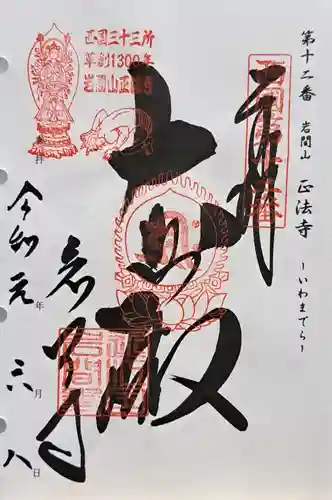 第十二番 岩間山 正法寺 ーいわまでらー
奉拝
西国三十三所
草創1300年
岩間山正法寺
大悲殿
岩間寺
令和元年六月八日